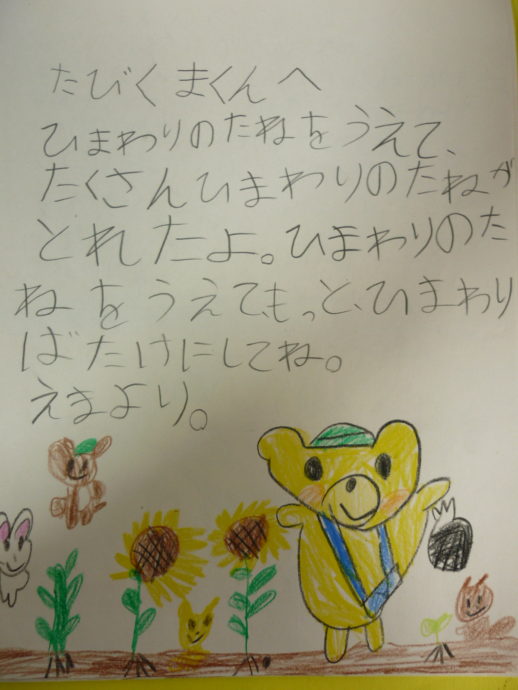 たびくまくんへ
ひまわりのたねをうえて、
たくさんひまわりのたねが
とれたよ。ひまわりのた
ねをうえて、もっと、ひまわり
ばたけにしてね。
えまより。